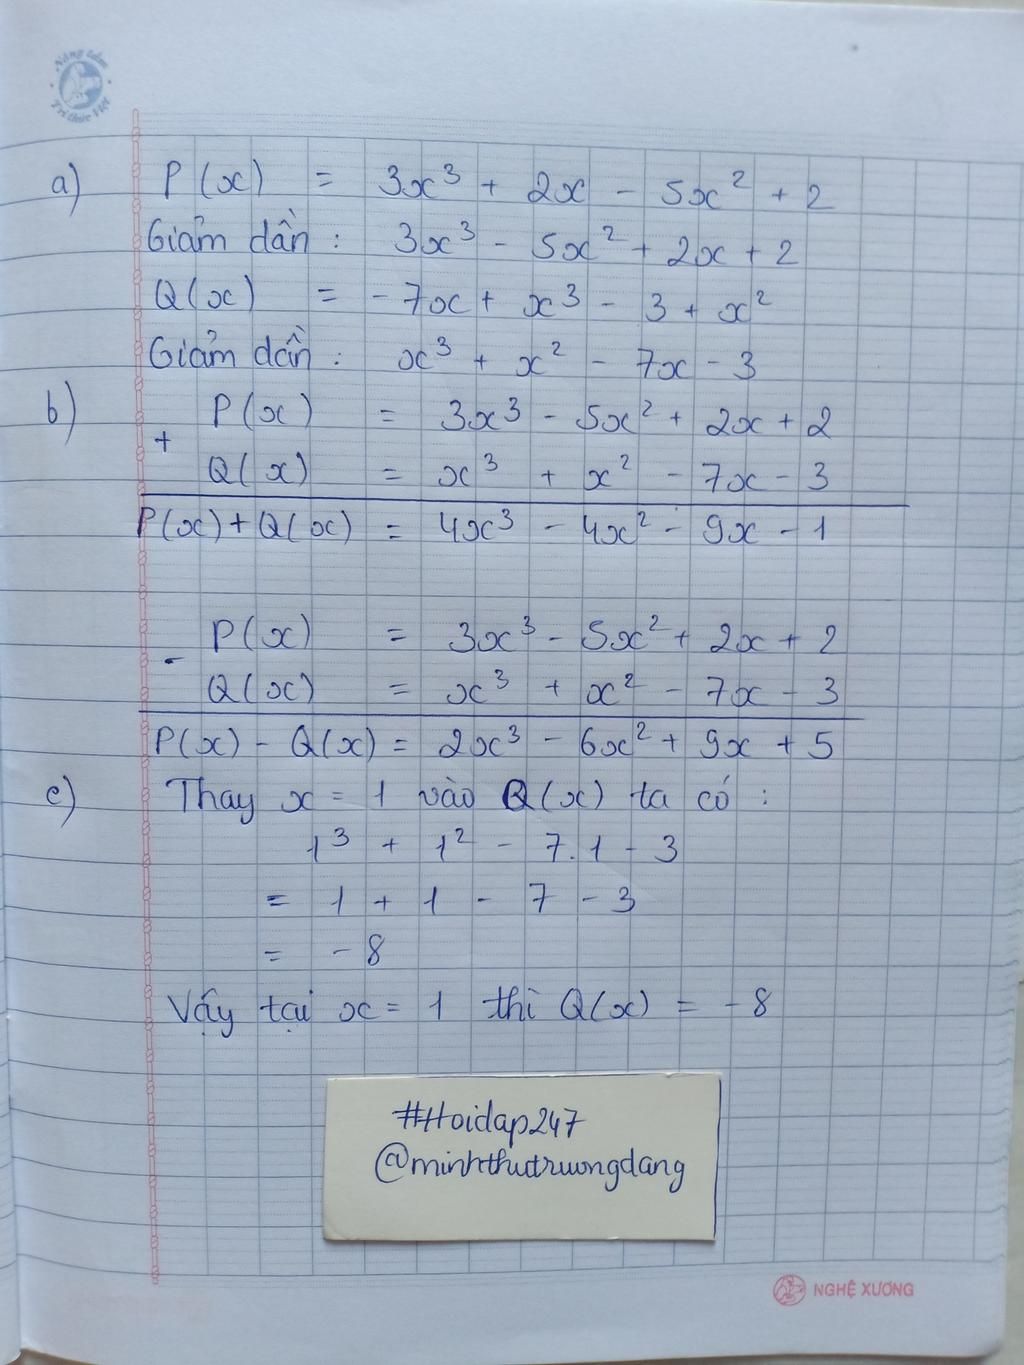 Nâng tầm
Tri thức Việt
a) P(x) = 3x³ + 2x - 5x² + 2
Giảm dần : 3x³ - 5x² + 2x + 2
Q(x) = -7x + x³ - 3 + x²
Giảm dần : x³ + x² - 7x - 3
b) P(x) = 3x³ - 5x² + 2x + 2
+
Q(x) = x³ + x² - 7x - 3
P(x) + Q(x) = 4x³ - 4x² - 9x - 1
P(x) = 3x³ - 5x² + 2x + 2
-
Q(x) = x³ + x² - 7x - 3
P(x) - Q(x) = 2x³ - 6x² + 9x + 5
c) Thay x = 1 vào Q(x) ta có :
1³ + 1² - 7.1 - 3
= 1 + 1 - 7 - 3
= -8
Vậy tại x = 1 thì Q(x) = -8
#Hoidap247
@minhthutruongdang
NGHỆ XƯƠNG